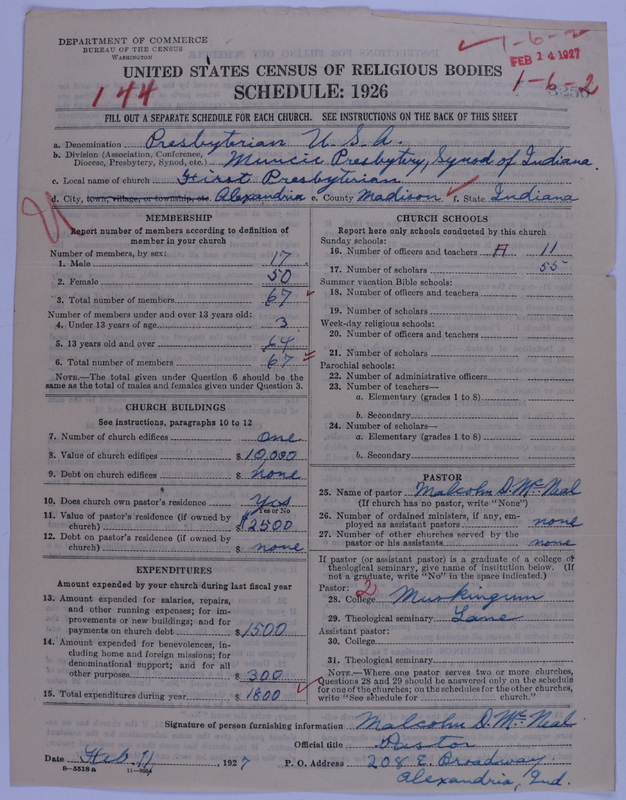 DEPARTMENT OF COMMERCE
BUREAU OF THE CENSUS
WASHINGTON
1-6-2
FEB 14 1927
1-6-2
UNITED STATES CENSUS OF RELIGIOUS BODIES
144
SCHEDULE: 1926
FILL OUT A SEPARATE SCHEDULE FOR EACH CHURCH. SEE INSTRUCTIONS ON THE BACK OF THIS SHEET
a. Denomination Presbyterian U.S.A.
b. Division (Association, Conference, Diocese, Presbytery, Synod, etc.) Muncie Presbytery, Synod of Indiana.
c. Local name of church First Presbyterian
d. City, town, village, or township, etc. Alexandria e. County Madison f. State Indiana
MEMBERSHIP
Report number of members according to definition of
member in your church
Number of members, by sex:
1. Male 17
2. Female 50
3. Total number of members 67
Number of members under and over 13 years old:
4. Under 13 years of age 3
5. 13 years old and over 64
6. Total number of members 67
NOTE.—The total given under Question 6 should be the
same as the total of males and females given under Question 3.
CHURCH BUILDINGS
See instructions, paragraphs 10 to 12
7. Number of church edifices one
8. Value of church edifices $ 10,000
9. Debt on church edifices $ none
10. Does church own pastor's residence Yes
Yes or No
11. Value of pastor's residence (if owned by
church) $ $2500
12. Debt on pastor's residence (if owned by
church) $ none
EXPENDITURES
Amount expended by church during last fiscal year
13. Amount expended for salaries, repairs,
and other running expenses; for im-
provements or new buildings; and for
payments on church debt $ 1500
14. Amount expended for benevolences, in-
cluding home and foreign missions; for
denominational support; and for all
other purposes $ 300
15. Total expenditures during year $ 1800
CHURCH SCHOOLS
Report here only schools conducted by this church
Sunday schools:
16. Number of officers and teachers 11
17. Number of scholars 55
Summer vacation Bible schools:
18. Number of officers and teachers
19. Number of scholars
Week-day religious schools:
20. Number of officers and teachers
21. Number of scholars
Parochial schools:
22. Number of administrative officers
23. Number of teachers—
a. Elementary (grades 1 to 8)
b. Secondary
24. Number of scholars—
a. Elementary (grades 1 to 8)
b. Secondary
PASTOR
25. Name of pastor Malcolm D. McNeal
(If church has no pastor, write "None")
26. Number of ordained ministers, if any, em-
ployed as assistant pastors none
27. Number of other churches served by the
pastor or his assistants none
If pastor (or assistant pastor) is a graduate of a college or
theological seminary, give name of institution below. (If
not a graduate, write "No" in the space indicated.)
Pastor: 2
28. College Muskingum
29. Theological seminary Lane
Assistant pastor:
30. College
31. Theological seminary
NOTE.—Where one pastor serves two or more churches,
Questions 28 and 29 should be answered only on the schedule
for one of the churches; on the schedules for the other churches,
write "See schedule for church."
Signature of person furnishing information Malcolm D. McNeal
Official title Pastor
Date Feb. 11, 1927 P. O. Address 208 E. Broadway.
8-5518a Alexandria, Ind.